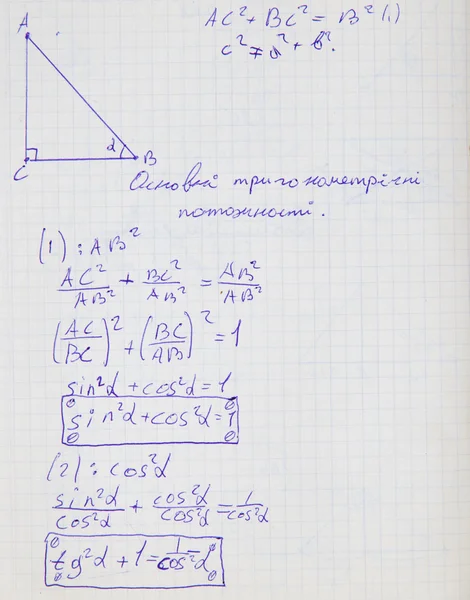 A
AC² + BC² = B² (1)
c² = a² + b².
α
C
B
Основні тригонометричні
тотожності.
(1) : AB²
AC²/AB² + BC²/AB² = AB²/AB²
(AC/BC)² + (BC/AB)² = 1
sin²α + cos²α = 1
sin²α + cos²α = 1
(2) : cos²α
sin²α/cos²α + cos²α/cos²α = 1/cos²α
tg²α + 1 = 1/cos²α